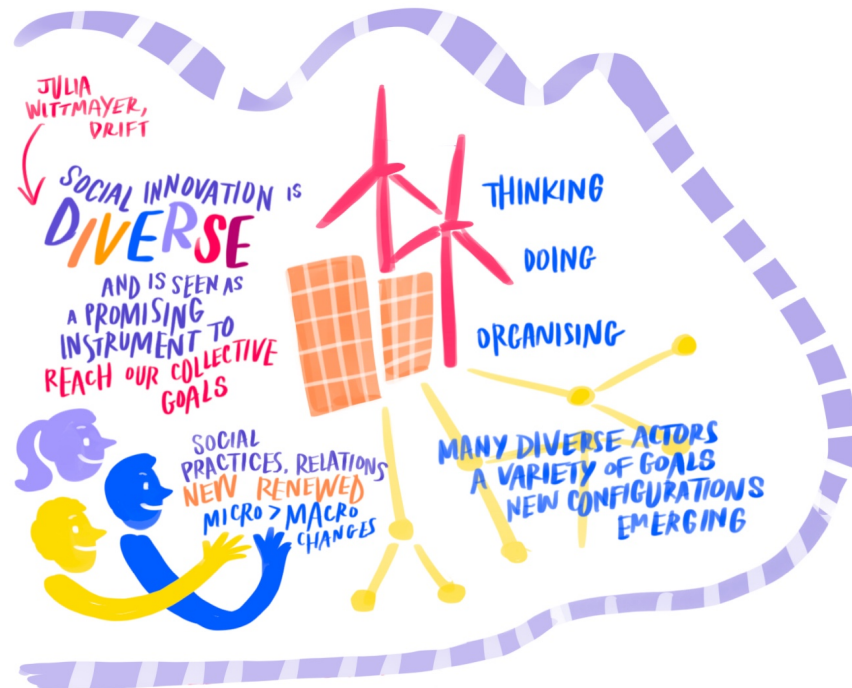 JULIA
WITTMAYER,
DRIFT
SOCIAL INNOVATION IS
DIVERSE
AND IS SEEN AS
A PROMISING
INSTRUMENT TO
REACH OUR COLLECTIVE
GOALS
THINKING
DOING
ORGANISING
SOCIAL
PRACTICES, RELATIONS
NEW RENEWED
MICRO > MACRO
CHANGES
MANY DIVERSE ACTORS
A VARIETY OF GOALS
NEW CONFIGURATIONS
EMERGING